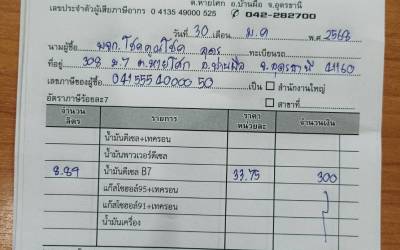 ต.หายโศก อ.บ้านผือ จ.อุดรธานี
เลขประจำตัวผู้เสียภาษีอากร 0 4135 49000 525 042-282700
วันที่ 30 เดือน ม.ค พ.ศ 2568
นามผู้ซื้อ หจก. โชคคูณโชค อุดร ทะเบียนรถ
ที่อยู่ 308 ม.7 ต.หายโศก อ.บ้านผือ จ.อุดรธานี 41160
เลขภาษีของผู้ซื้อ 041555 40000 50 เป็น ☐ สำนักงานใหญ่
อัตราภาษีร้อยละ7 ☐ สาขาที่
จำนวนลิตร รายการ ราคาหน่วยละ จำนวนเงิน
น้ำมันดีเซล+เทครอน
น้ำมันพาวเวอร์ดีเซล
8.89 น้ำมันดีเซล B7 33.75 300
แก๊สโซฮอล์95+เทครอน
แก๊สโซฮอล์91+เทครอน
น้ำมันเครื่อง